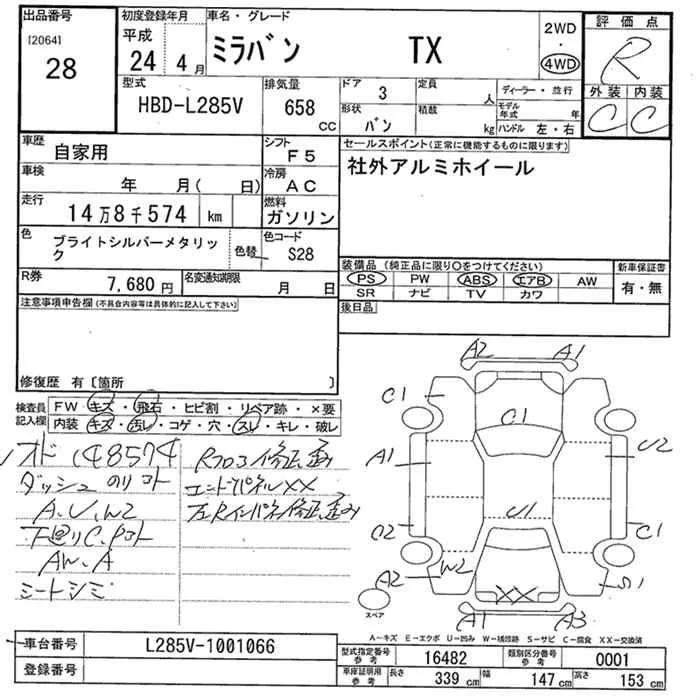 出品番号
[2064]
28
初度登録年月
平成
24 4月
車名・グレード
ミラバン TX
2WD
・
4WD
評価点
R
外装 内装
C C
型式
HBD-L285V
排気量
658
CC
ドア 3
形状 バン
定員 人
積載 kg
ディーラー・並行
モデル年式 年
ハンドル 左・右
車歴
自家用
シフト
F5
車検
年 月( 日)
冷房
AC
走行
14万8千574 km
燃料
ガソリン
色
ブライトシルバーメタリック
色替
色コード
S28
R券
7,680円
名変通知期限
月 日
セールスポイント(正常に機能するものに限ります)
社外アルミホイール
装備品 (純正品に限り○をつけてください)
PS PW ABS エアB AW
SR ナビ TV カワ
新車保証書
有・無
後日品
注意事項申告欄(不具合内容等は具体的に記入して下さい)
修復歴 有〔箇所 〕
検査員
記入欄
FW キズ・飛石・ヒビ割・リペア跡・×要
内装 キズ・汚レ・コゲ・穴・スレ・キレ・破レ
オド 148574
ダッシュ のリコト
A.U.W2
下廻りC.Pコト
AW.A
シートシミ
Rフロア修正歪み
エンドパネルXX
左Rインパネ修正歪み
A2 A1
C1
C1
A1
U2
U1
C2
C1
A2
W2
XX
S1
A1 A3
スペア
A-キズ E-エクボ U-凹み W-補修跡 S-サビ C-腐食 XX-交換済
車台番号
L285V-1001066
登録番号
型式指定番号
参考
16482
類別区分番号
参考
0001
車庫証明用
参考
長さ 339 cm
幅 147 cm
高さ 153 cm